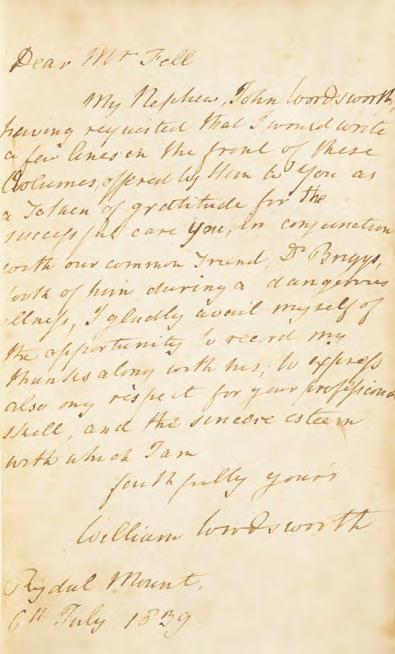 Dear Mr Fell
My Nephew, John Wordsworth,
having requested that I would write
a few lines in the front of these
Volumes, offered by Him to You as
a Token of gratitude for the
successful care you, in conjunction
with our common Friend, Dr Briggs,
took of him during a dangerous
illness, I gladly avail myself of
the opportunity to record my
thanks along with his; to express
also my respect for your professional
skill, and the sincere esteem
with which I am
faithfully yours
William Wordsworth
Rydal Mount,
6th July 1839